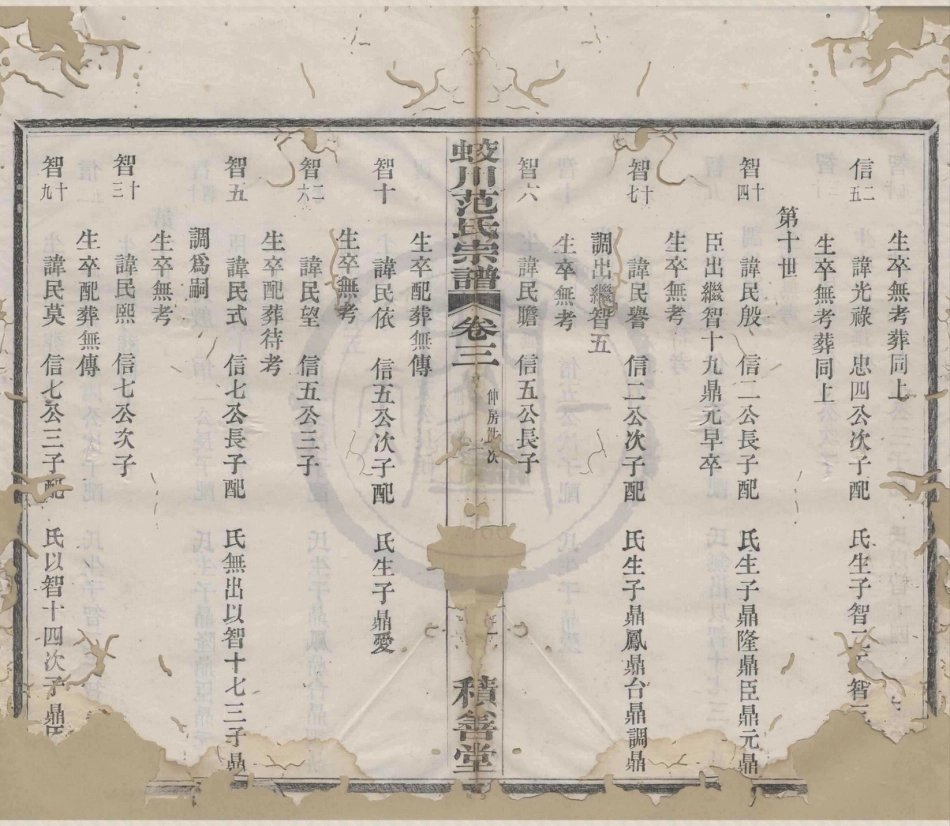 生卒無考葬同上
信二五 諱光祿 忠四公次子配 氏生子智
生卒無考葬同上
第十世
智十四 諱民殷 信二公長子配 氏生子鼎隆鼎臣鼎元鼎
臣出繼智十九鼎元早卒
生卒無考
智十七 諱民譽 信二公次子配 氏生子鼎鳳鼎台鼎調鼎
調出繼智五
生卒無考
智六 諱民瞻 信五公長子
蛟川范氏宗譜 卷三 仲房世次 積善堂
生卒配葬無傳
智十 諱民依 信五公次子配 氏生子鼎愛
生卒無考
智二六 諱民望 信五公三子
生卒配葬待考
智五 諱民式 信七公長子配 氏無出以智十七三子鼎
調爲嗣
生卒無考
智十三 諱民熙 信七公次子
生卒配葬無傳
智十九 諱民莫 信七公三子配 氏以智十四次子鼎